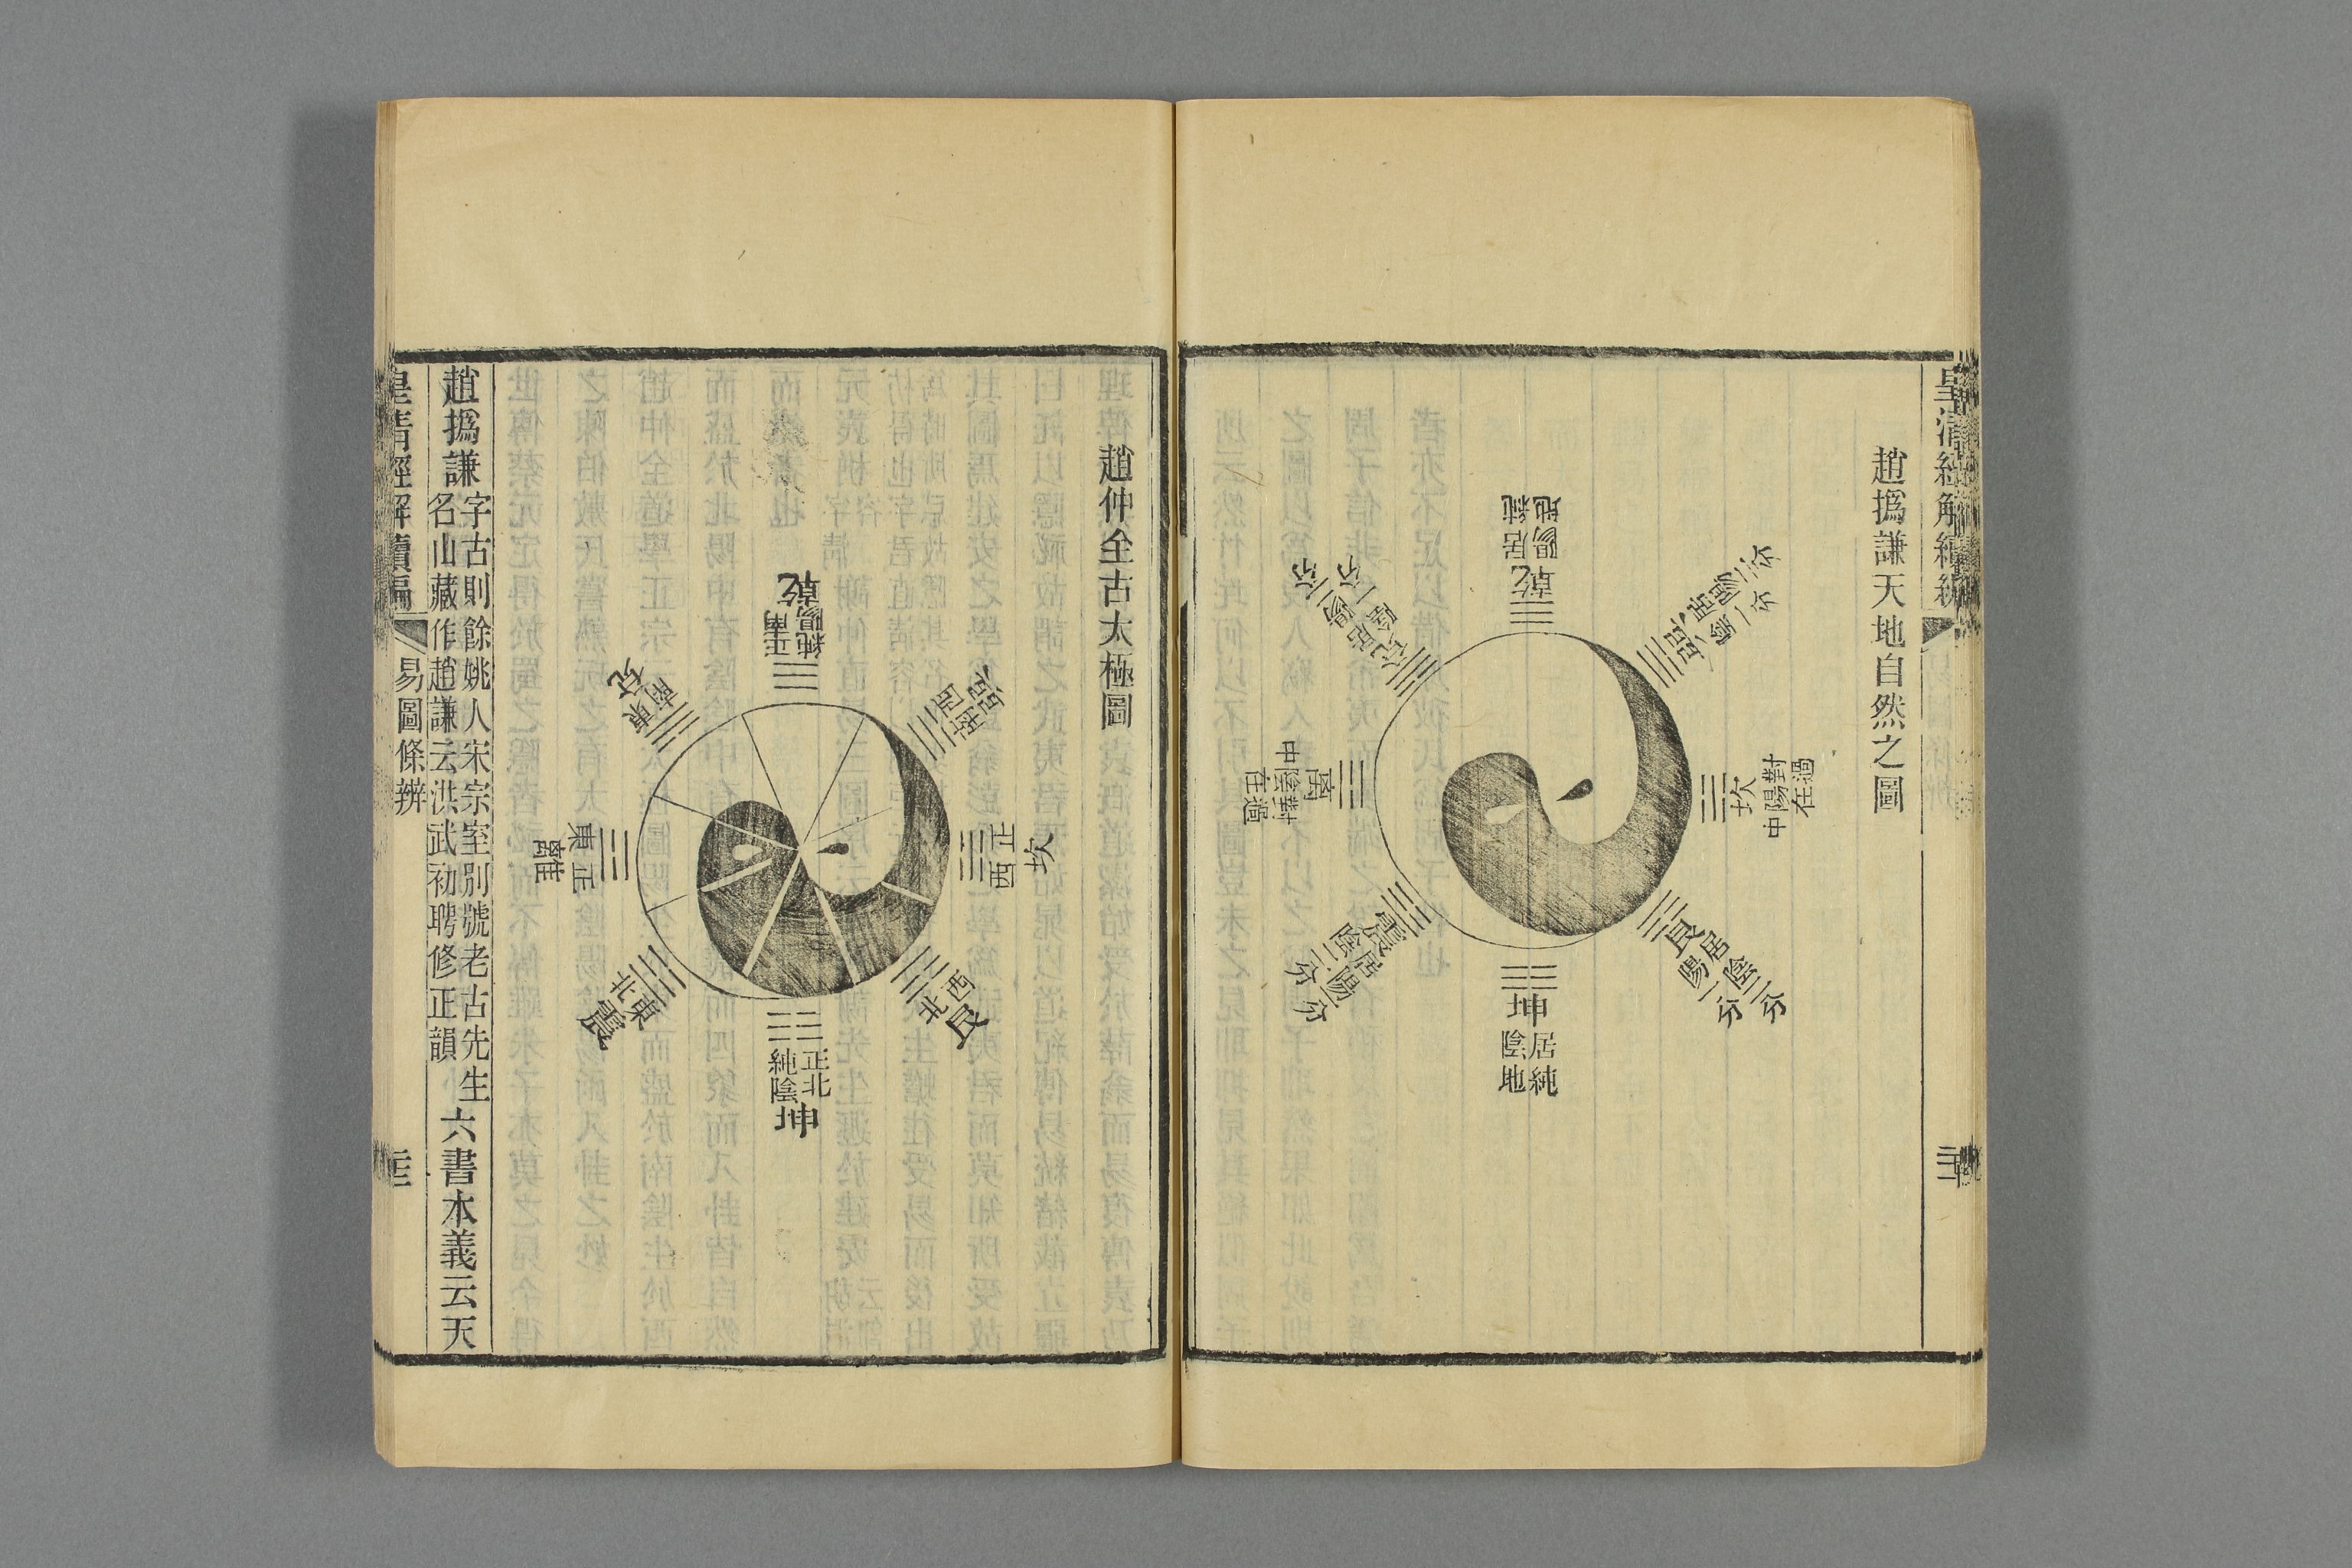 皇清經解續編
趙撝謙天地自然之圖
乾
居純
陽地
巽
居陽二分
陰一分
坎
對過
陽在
中
艮
居陰二分
陽一分
坤
居純
陰地
震
居陽一分
陰二分
離
對過
陰在
中
兌
居陽二分
陰一分
趙仲全古太極圖
乾
純陽
正南
巽
西南
坎
正西
艮
西北
坤
正北
純陰
震
東北
離
正東
兌
東南
趙撝謙
字古則餘姚人宋宗室別號老古先生
名山藏作趙謙云洪武初聘修正韻
六書本義云天
皇清經解續編
易圖條辨